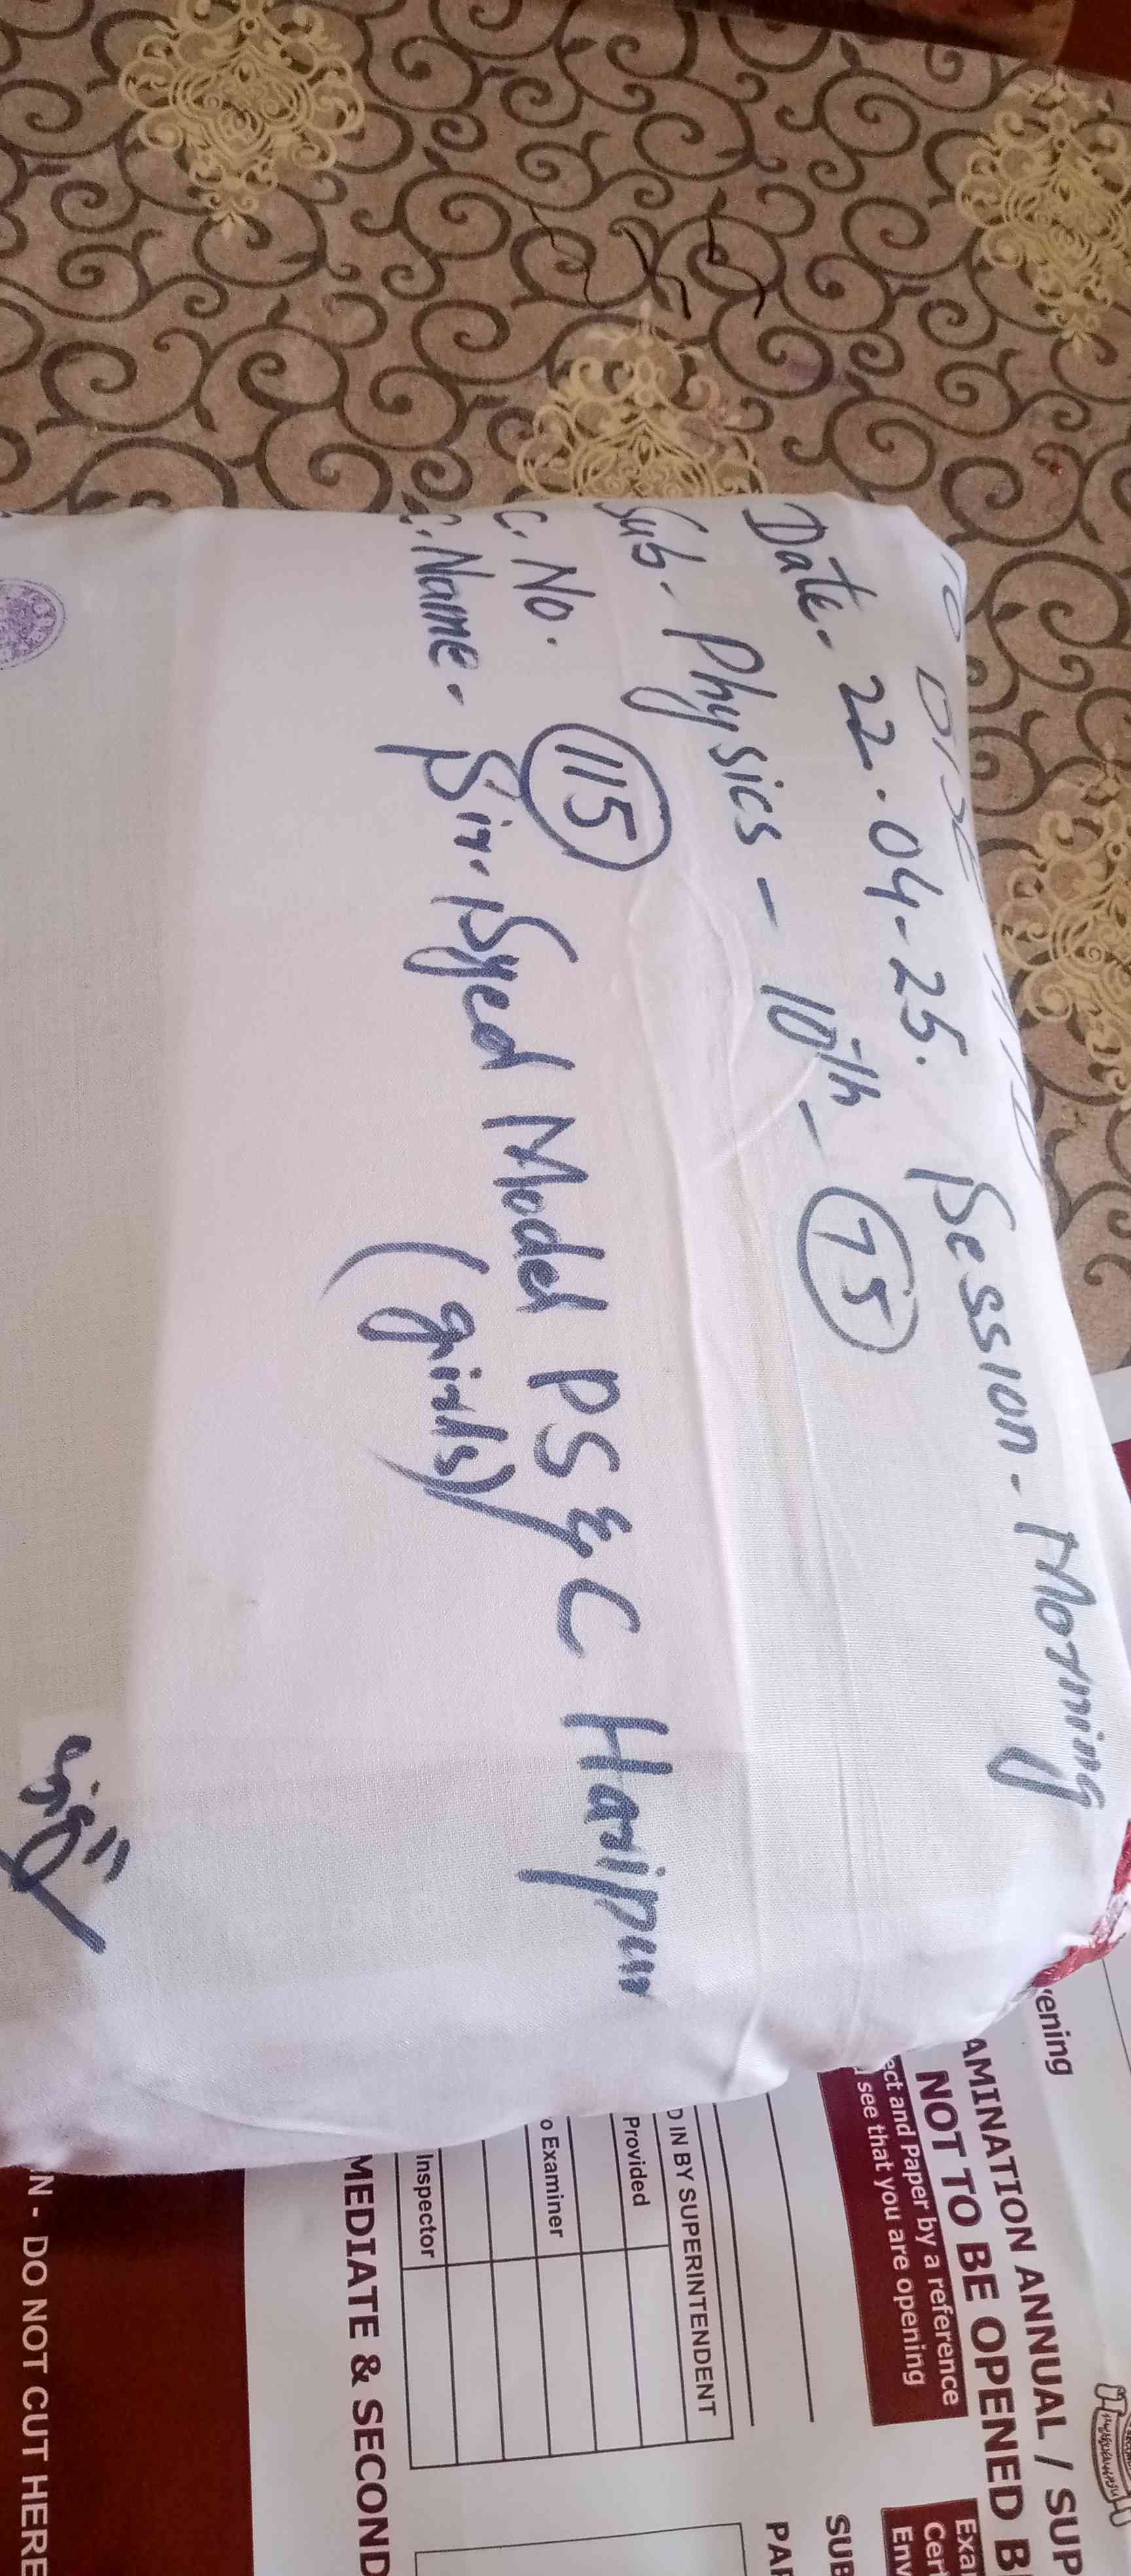 TO BISE ATD
Date. 22.04-25. Session. Morning
Sub. Physics - 10th - 75
C. No. 115
C. Name. Sir Syed Model PS & C Haripur
(girls)
ening
AMINATION ANNUAL / SUP
NOT TO BE OPENED B
ect and Paper by a reference
see that you are opening
Exa
Cer
Env
SUB
PAP
D IN BY SUPERINTENDENT
Provided
o Examiner
Inspector
MEDIATE & SECOND
N - DO NOT CUT HERE